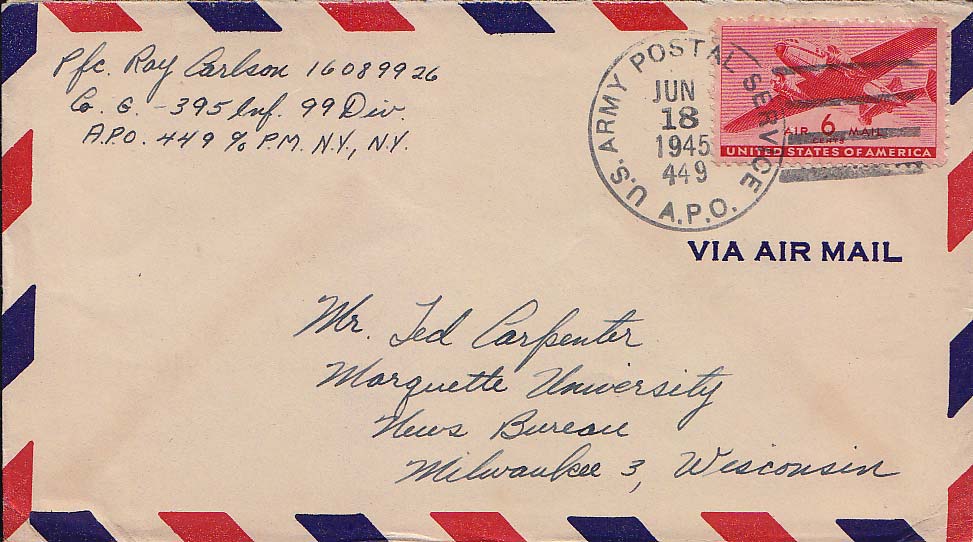 Pfc. Ray Carlson 16089926
Co. G - 395 Inf. 99 Div.
A.P.O. 449 % P.M. N.Y., N.Y.
U.S. ARMY POSTAL SERVICE
JUN
18
1945
449
A.P.O.
AIR 6 MAIL
CENTS
UNITED STATES OF AMERICA
VIA AIR MAIL
Mr. Ted Carpenter
Marquette University
News Bureau
Milwaukee 3, Wisconsin